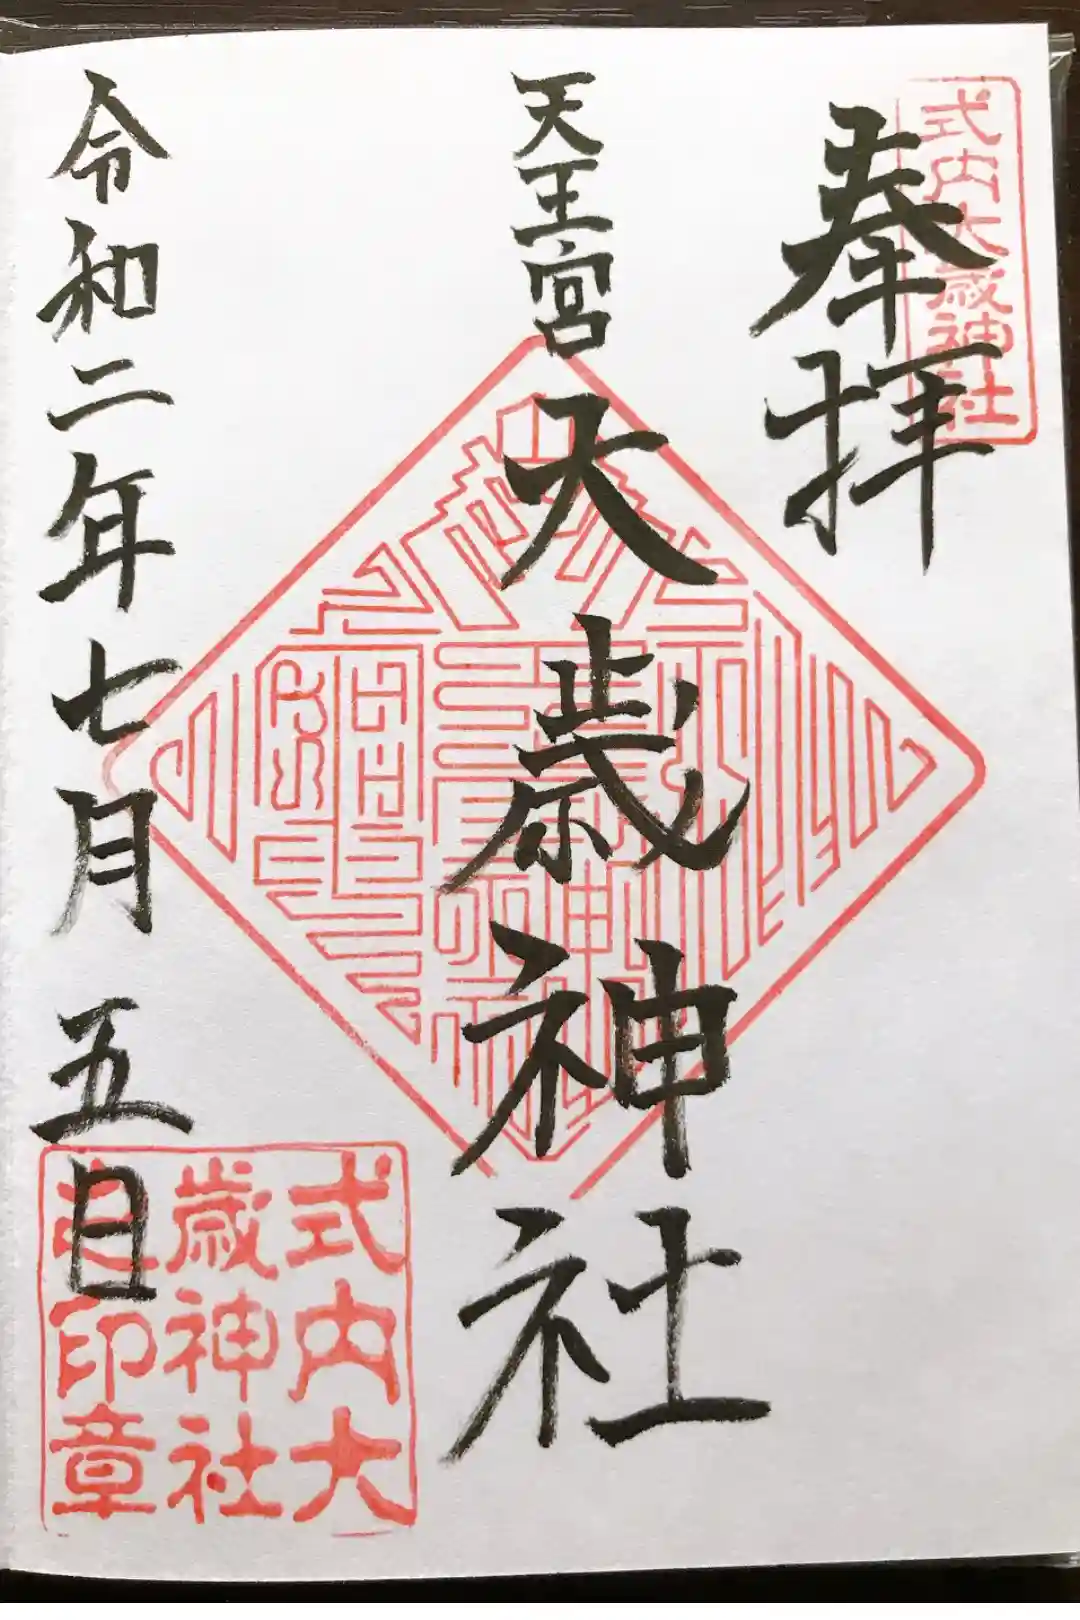 奉拝
式内大歳神社
天王宮
大歳神社
令和二年七月五日
式内大
歳神社
之印章